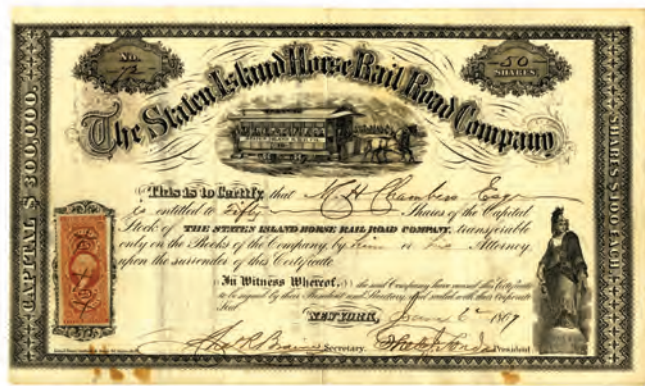 No.
50
SHARES
The Staten Island Horse Rail Road Company
CAPITAL $ 300,000.
SHARES $100 EACH.
This is to Certify, that M. H. Chambers Esq
is entitled to Fifty Shares of the Capital
Stock of THE STATEN ISLAND HORSE RAIL ROAD COMPANY, transferable
only on the Books of the Company by him or his Attorney
upon the surrender of this Certificate.
In Witness Whereof, the said Company have caused this Certificate
to be signed by their President and Secretary, and sealed with their Corporate
Seal.
NEW YORK, 1867
Secretary. President